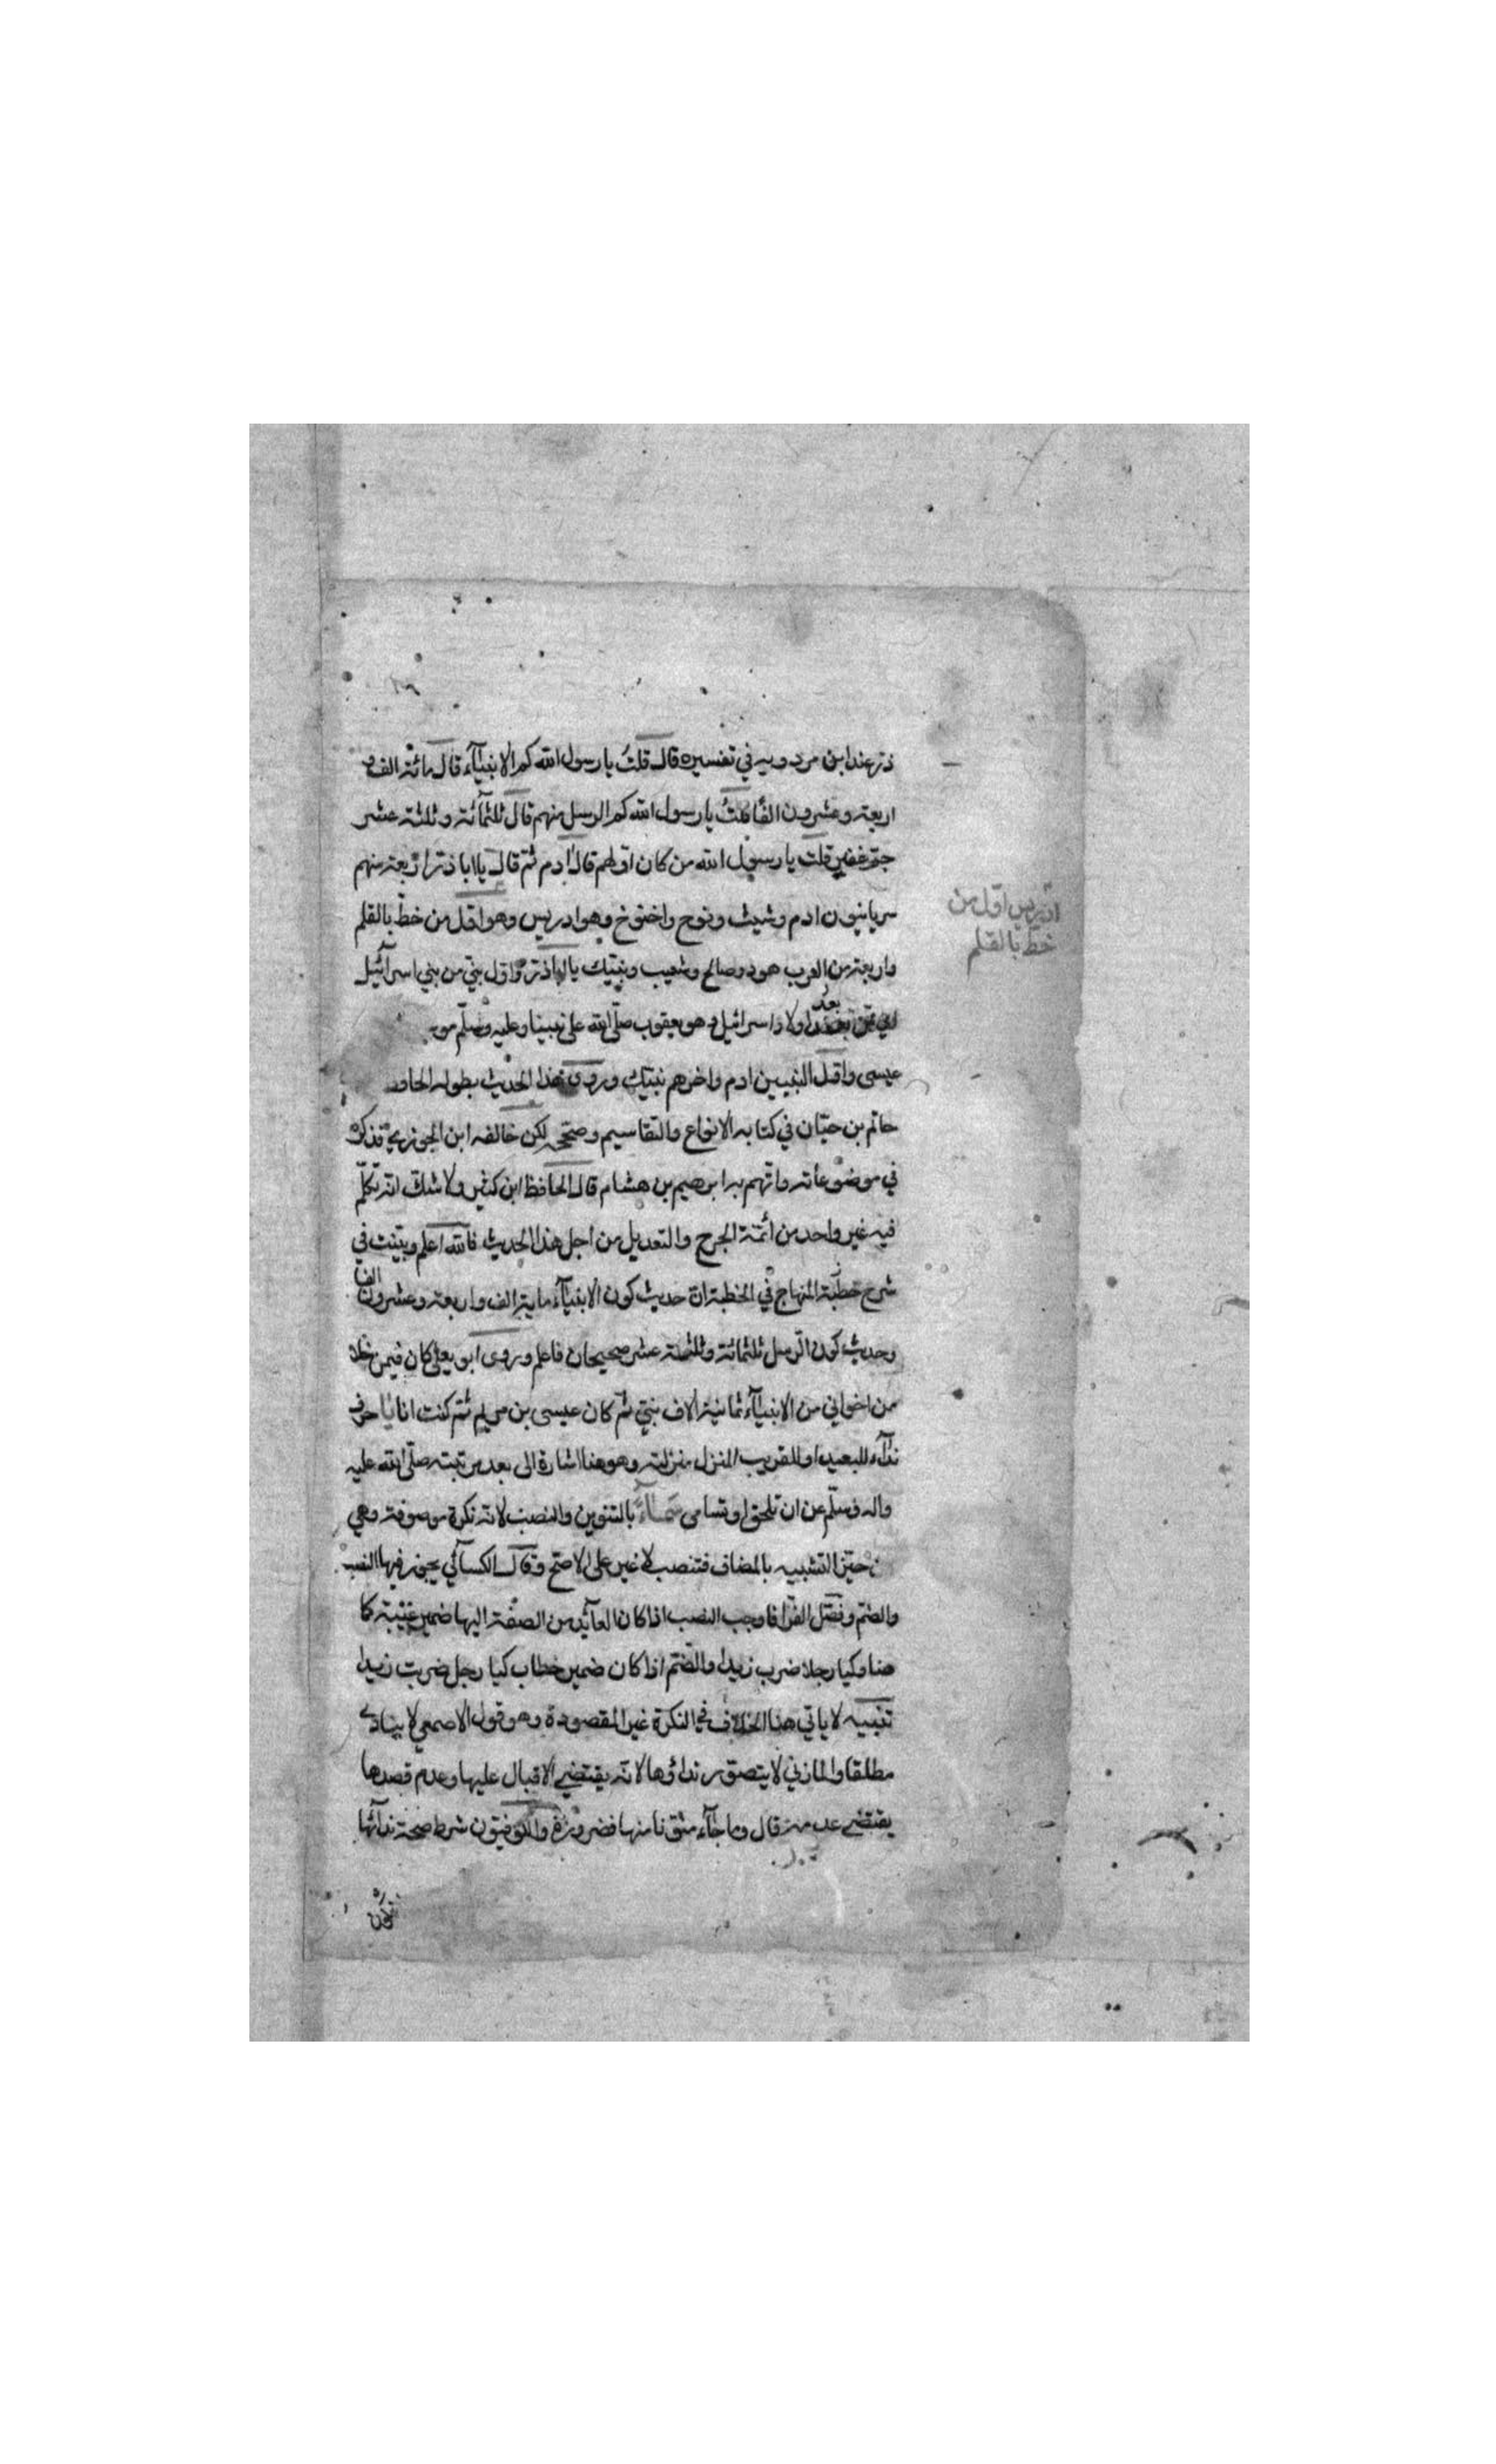 ذر عند ابن مردويه في تفسيره قال قلت يا رسول الله كم الانبيآء قال مائة الف و
اربعة وعشرون الفًا قلتُ يا رسول الله كم الرسل منهم قال ثلثمآئة وثلثة عشر
جم غفير قلت يا رسول الله من كان اولهم قال ادم ثم قال يا ابا ذر اربعة منهم
سريانيون ادم وشيث ونوح واخنوخ وهو ادريس وهو اول من خطّ بالقلم
ادريس اول من
خط بالقلم
واربعة من العرب هود وصالح وشعيب ونبيك يا ابا ذر واول نبي من بني اسرآئيل
اي بعد اولاد اسرائيل وهو يعقوب صلّى الله على نبينا وعليه وسلّم مو
عيسى واوّل النبيين ادم واخرهم نبيك وروى هذا الحديث بطوله الحافظ
حاتم بن حبّان في كتابه الانواع والتقاسيم وصححه لكن خالفه ابن الجوزي فذكره
في موضوعاته واتّهم به ابرهيم بن هشام قال الحافظ ابن كثير ولا شك انه تكلّم
فيه غير واحد من أئمة الجرح والتعديل من اجل هذا الحديث فالله اعلم وبينت في
شرح خطبة المنهاج في الخطبة انّ حديث كون الانبيآء ماية الف واربعة وعشرون الفا
وحديث كون الرسل ثلثمائة وثلثة عشر صحيحان فاعلم وروى ابو يعلى كان فيمن خلا
من اخواني من الانبيآء ثمانية الاف نبيّ ثم كان عيسى بن مريم ثم كنت انا يا حرف
ندآء للبعيد او للقريب المنزل منزلته وهو هنا اشارة الى بعد مرتبته صلّى الله عليه
واله وسلّم عن ان تلحق او تسامى سَمآءً بالتنوين والنصب لانه نكرة موصوفة وهي
حيّز التشبيه بالمضاف فتنصب لا غير على الاصحّ وقال الكسآئي يجوز فيها النصب
والضم وفصّل الفرّا فاوجب النصب اذا كان العآئد من الصفة اليها ضمير غيبة كا
هنا وكيا رجلا ضرب زيدا والضّم اذا كان ضمير خطاب كيا رجل ضربت زيدا
تنبيه لا ياتي هذا الخلاف في النكرة غير المقصودة وهو قول الاصمعي لا ينادى
مطلقا والمازني لا يتصوّر نداؤها لانه يقتضي الاقبال عليها وعدم قصدها
يقتضي عدمه قال وما جآء منوّنا منها فضرورة والكوفيّون شرط صحة ندآئها